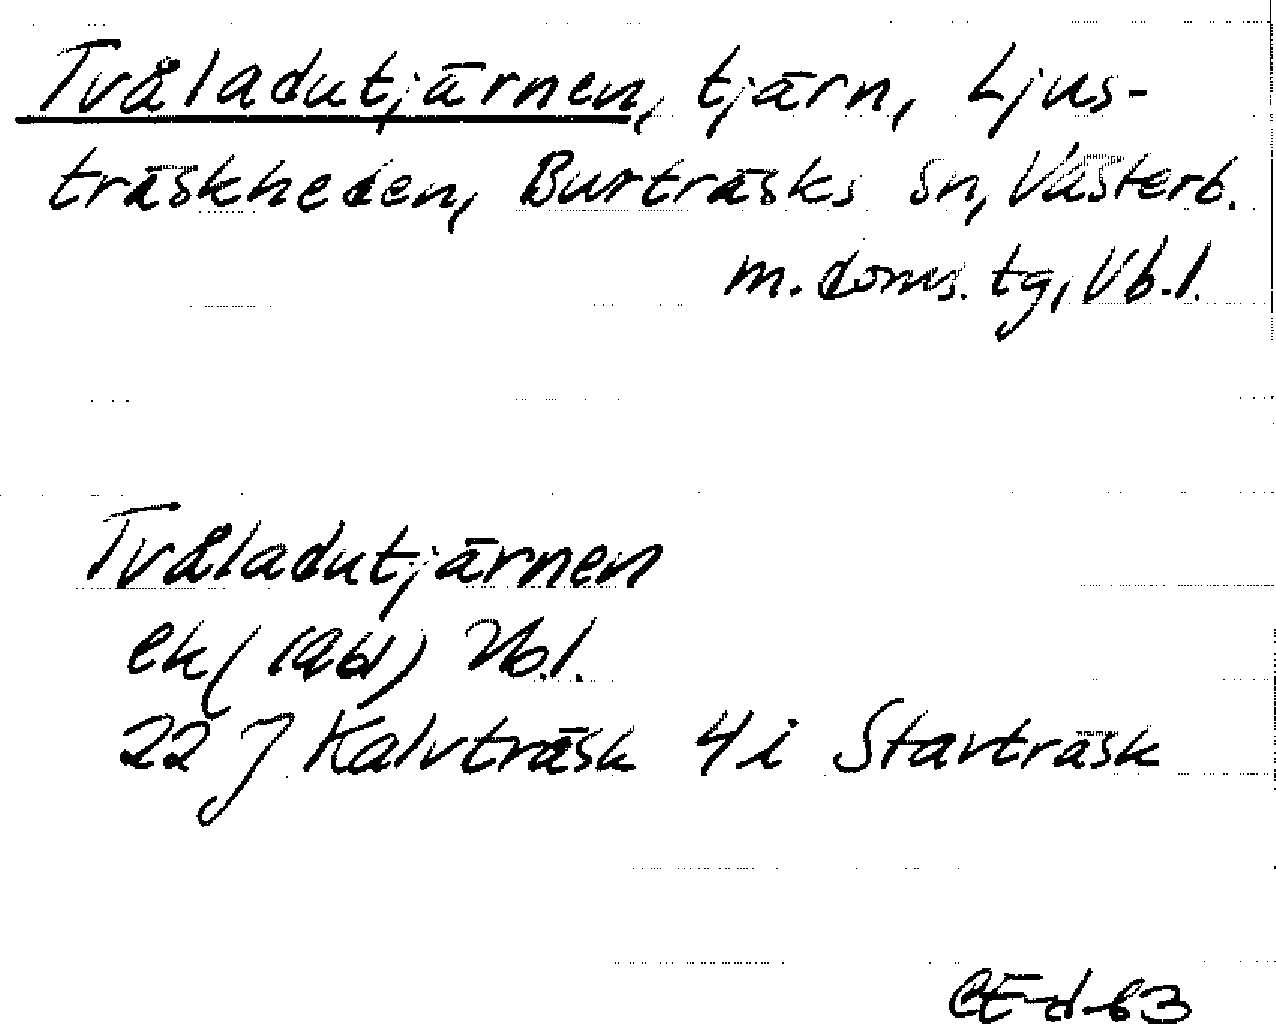 Tvåladutjärnen, tjärn, Ljus-
träskheden, Burträsks sn, Västerb.
m. doms. tg, Vb. l.
Tvåladutjärnen
ek (1961) Vb. l.
22 J Kalvträsk 4 i Stavträsk